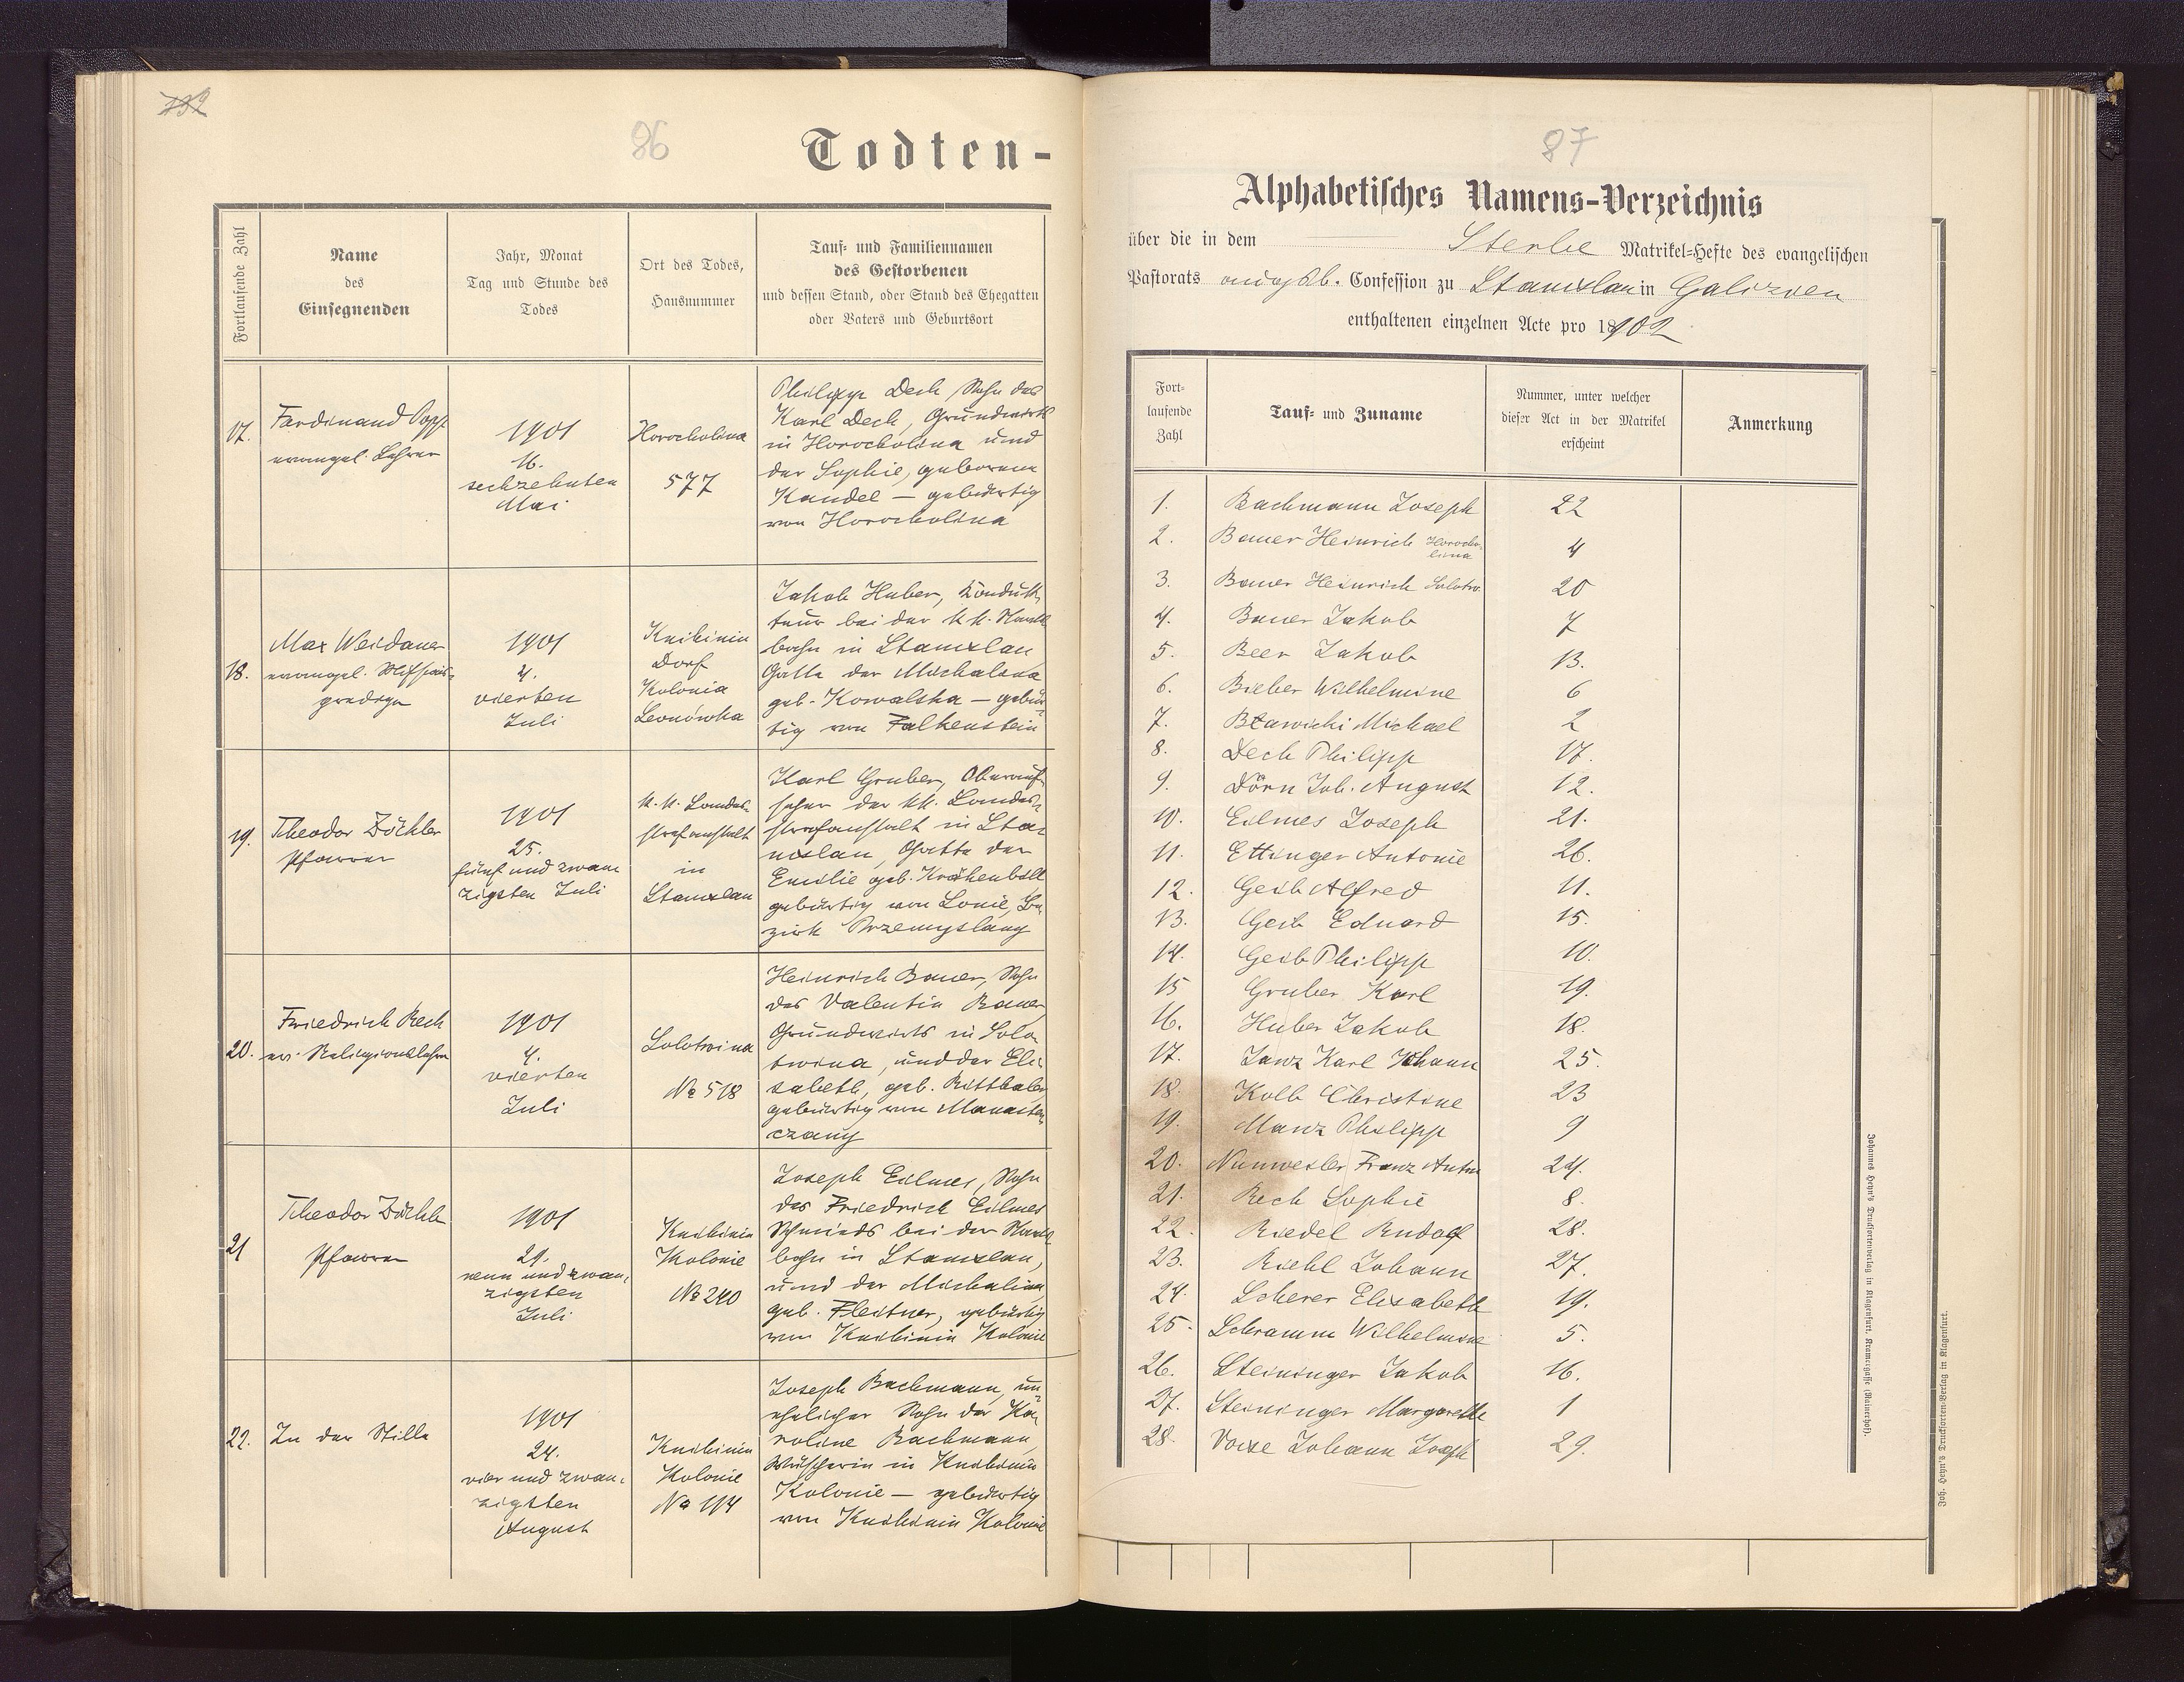 132
86
Todten-
Fortlaufende Zahl
Name
des
Einsegnenden
Jahr, Monat
Tag und Stunde des
Todes
Ort des Todes,
Hausnummer
Tauf- und Familiennamen
des Gestorbenen
und dessen Stand, oder Stand des Ehegatten
oder Vaters und Geburtsort
17.
Ferdinand Popp
evangel. Lehrer
1901
16.
sechzehnten
Mai
Horocholina
577
Philipp Dech, Sohn des
Karl Dech, Grundwirts
in Horocholina und
der Sophie, geborene
Kandel — gebürtig
von Horocholina
18.
Max Weidauer
evangel.
1901
4.
vierten
Juli
Knihinin
Dorf
Kolonia
Leonówka
Jakob Huber, Konduk-
teur bei der kk. Staats-
bahn in Stanislau
Gatte der Michalina
geb. Kowalska — gebür-
tig von Falkenstein
19.
Theodor Zöckler
Pfarrer
1901
25.
fünf und zwan-
zigsten Juli
k. k. Landes-
strafanstalt
in
Stanislau
Karl Gruber, Oberauf-
seher der kk. Landes-
strafanstalt in Sta-
nislau, Gatte der
Emilie geb. Krähenbill
gebürtig von Lonie, Be-
zirk Przemyslany
20.
Friedrich Rech
ev. Religionslehrer
1901
4.
vierten
Juli
Solotwina
No 518
Heinrich Bauer, Sohn
des Valentin Bauer,
Grundwirts in Solo-
twina, und der Eli-
sabeth, geb. Ritthaler
gebürtig von Monaster-
czany
21
Theodor Zöckler
Pfarrer
1901
29.
neun und zwan-
zigsten
Juli
Knihinin
Kolonie
No 240
Joseph Eilmes, Sohn
des Friedrich Eilmes
Schmieds bei der Staats-
bahn in Stanislau,
und der Michalina,
geb. Fleitner, gebürtig
von Knihinin Kolonie
22.
In der Stille
1901
24.
vier und zwan-
zigsten
August
Knihinin
Kolonie
No 114
Joseph Bachmann, un-
ehelicher Sohn der Ka-
roline Bachmann,
Wäscherin in Knihinin
Kolonie — gebürtig
von Knihinin Kolonie
87
Alphabetisches Namens-Verzeichnis
über die in dem Sterbe Matrikel-Hefte des evangelischen
Pastorats Confession zu Stanislau in Galizien
enthaltenen einzelnen Acte pro 1902
Fort-
laufende
Zahl
Tauf- und Zuname
Nummer, unter welcher
dieser Act in der Matrikel
erscheint
Anmerkung
1. Bachmann Joseph 22
2. Bauer Heinrich Horocho-
lina 4
3. Bauer Heinrich Solotw. 20
4. Bauer Jakob 7
5. Beer Jakob 13.
6. Bieber Wilhelmine 6
7. Bławicki Michael 2
8. Dech Philipp 17.
9. Dörn Joh. August 12.
10. Eilmes Joseph 21.
11. Ettinger Antonie 26.
12. Geib Alfred 11.
13. Geib Eduard 15.
14. Geib Philipp 10.
15 Gruber Karl 19.
16. Huber Jakob 18.
17. Janz Karl Johann 25.
18. Kolb Christine 23
19. Manz Philipp 9
20. Nunweiler Franz Anton 24.
21. Rech Sophie 8.
22. Riedel Rudolf 28.
23. Riehl Johann 27.
24. Scherer Elisabeth 19.
25. Schramm Wilhelmine 5.
26. Steininger Jakob 16.
27. Steininger Margarethe 1
28. Johann Joseph 29.
Johannes Heyn's Drucksortenverlag in Klagenfurt, Kramergasse (Rainerhof).
Joh. Heyn's Drucksorten-Verlag in Klagenfurt.